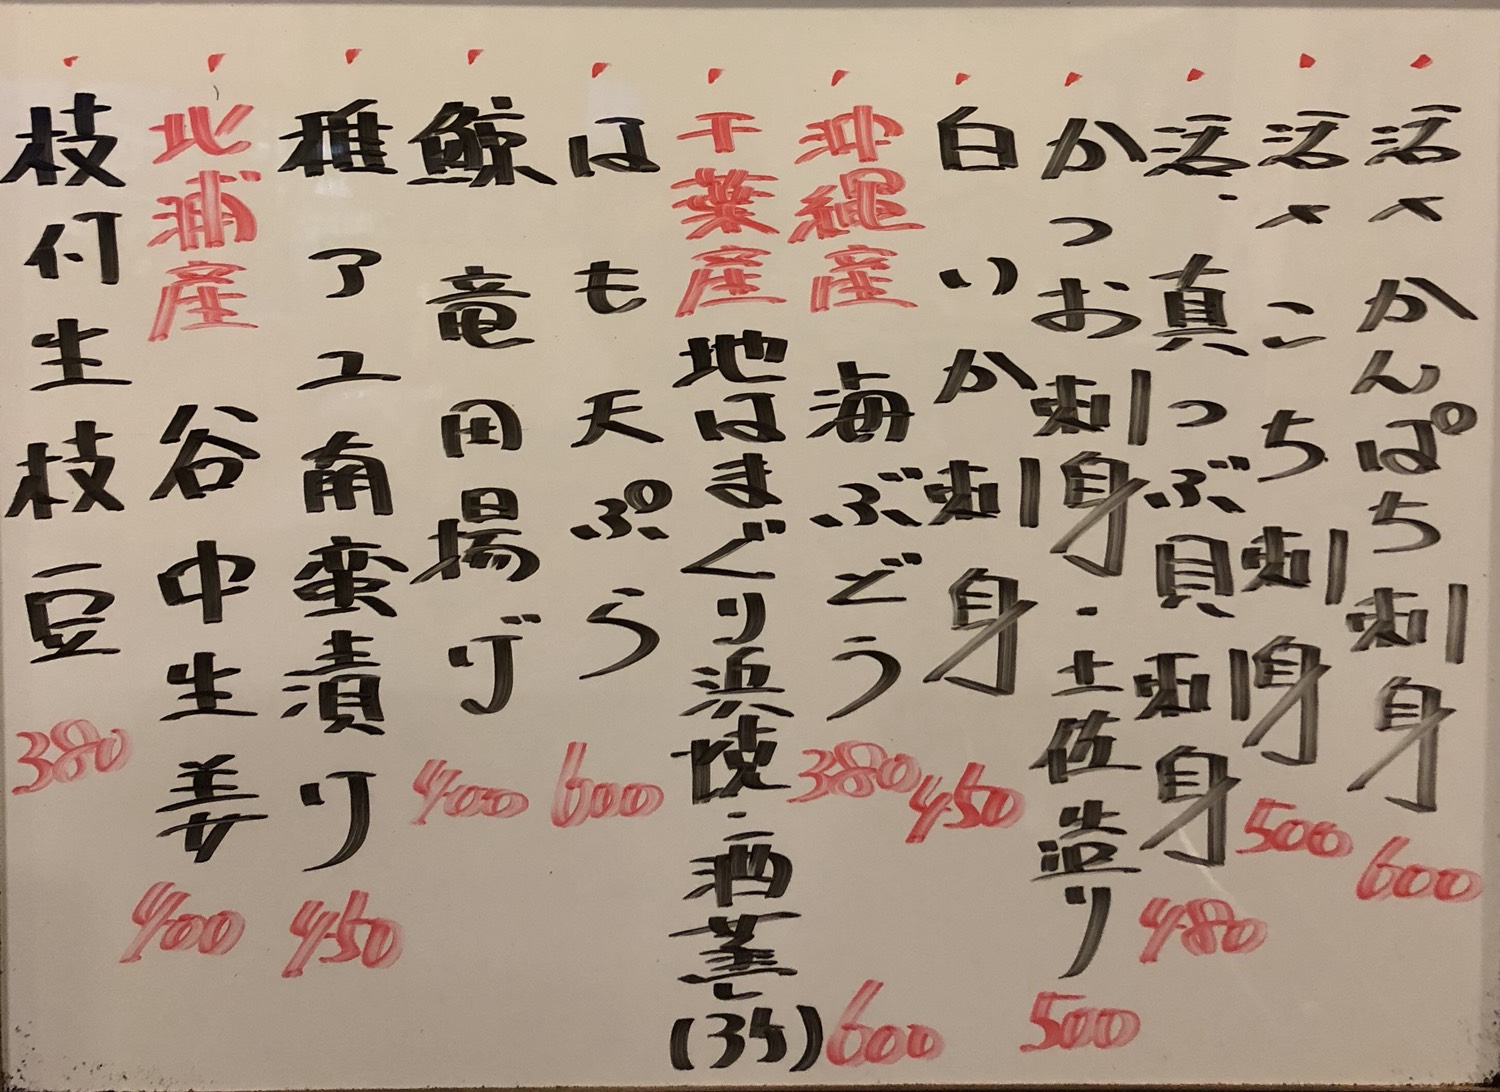 活〆かんぱち刺身 600
活〆こち刺身 500
活・真つぶ貝刺身 480
かつお刺身・土佐造り 500
白いか刺身 450
沖縄産 海ぶどう 380
千葉産 地はまぐり浜焼・酒蒸し(3ケ) 600
はも天ぷら 600
鯨竜田揚げ 400
稚アユ南蛮漬け 450
北浦産 谷中生姜 400
枝付生枝豆 380